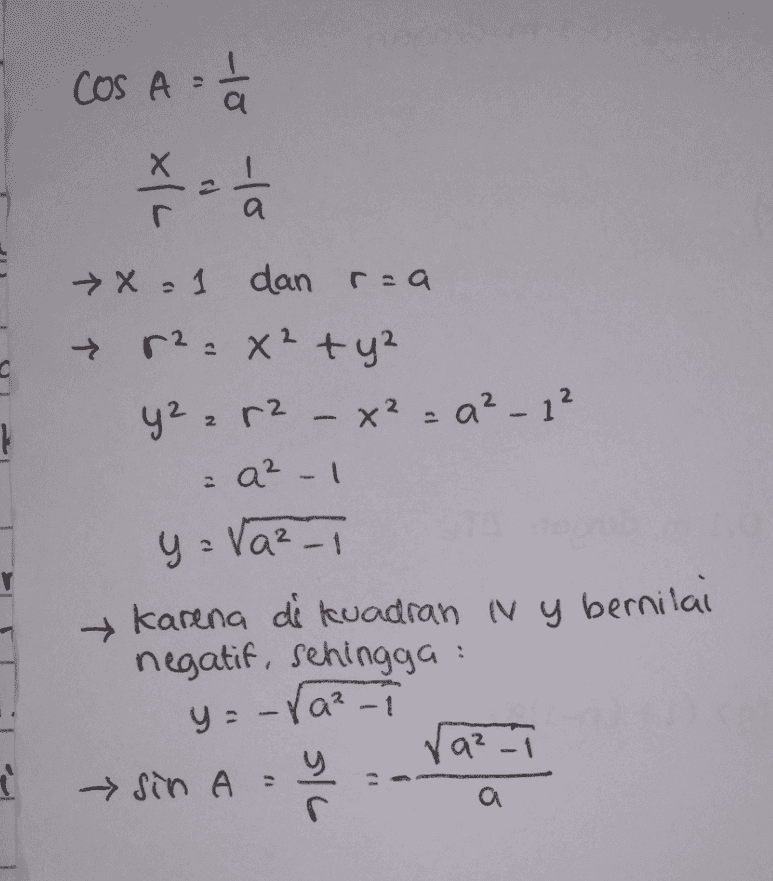 cos A = 1/a
x/r = 1/a
→ x = 1 dan r = a
→ r² = x² + y²
y² = r² - x² = a² - 1²
= a² - 1
y = √a² - 1
→ karena di kuadran IV y bernilai
negatif, sehingga :
y = -√a² - 1
→ sin A = y/r = - √a² - 1/a